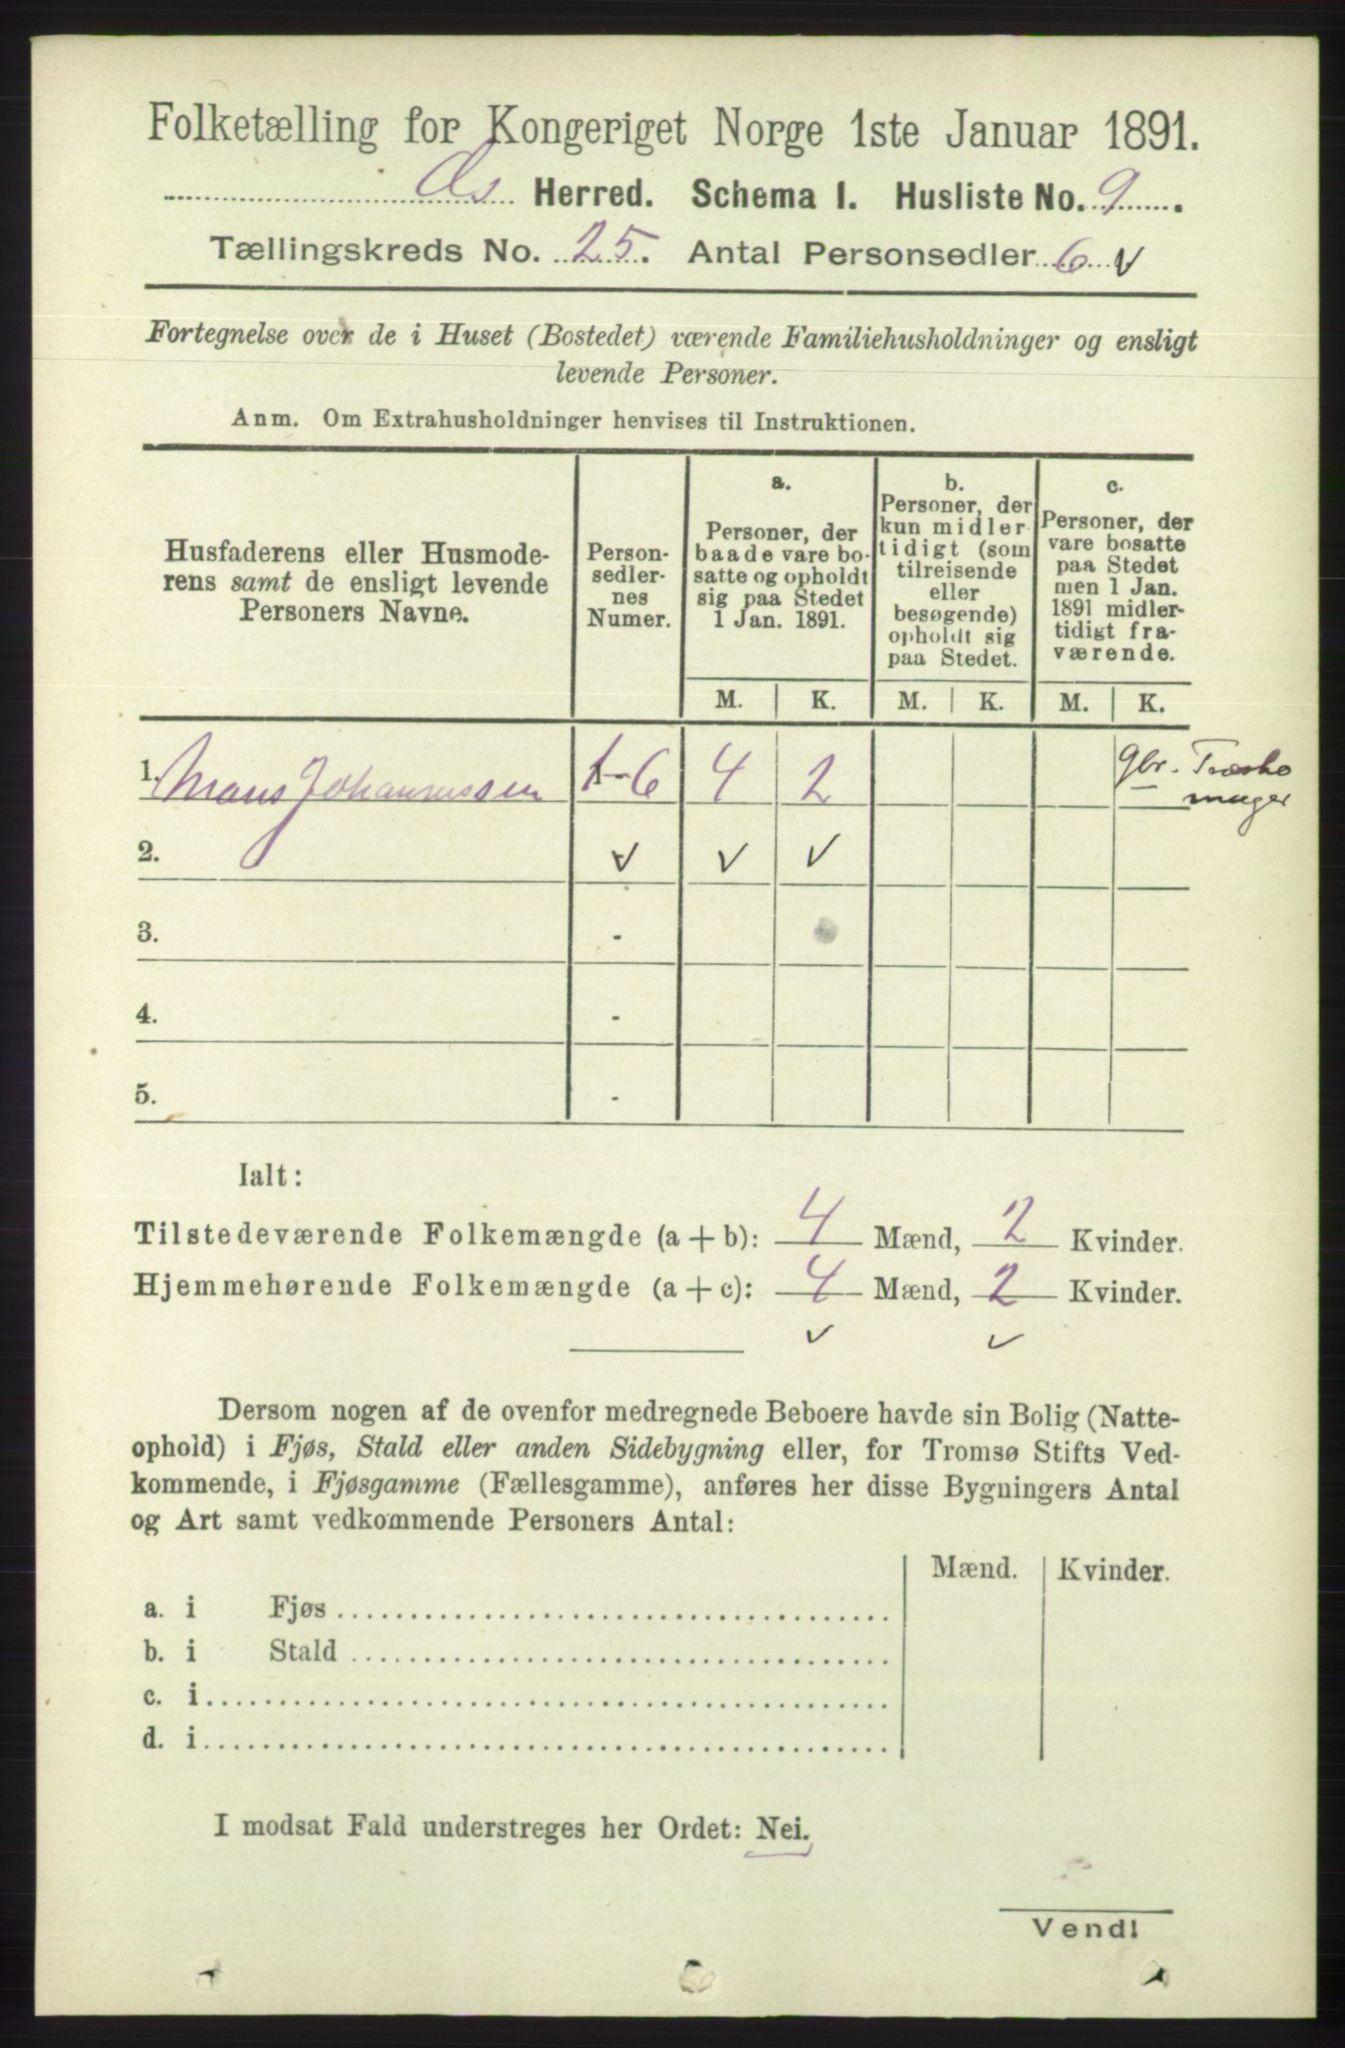 Folketælling for Kongeriget Norge 1ste Januar 1891.
Os Herred. Schema I. Husliste No. 9.
Tællingskreds No. 25. Antal Personsedler 6 ✓
Fortegnelse over de i Huset (Bostedet) værende Familiehusholdninger og ensligt
levende Personer.
Anm. Om Extrahusholdninger henvises til Instruktionen.
Husfaderens eller Husmode-
rens samt de ensligt levende
Personers Navne.
Person-
sedler-
nes
Numer.
a.
Personer, der
baade vare bo-
satte og opholdt
sig paa Stedet
1 Jan. 1891.
b.
Personer, der
kun midler-
tidigt (som
tilreisende
eller
besøgende)
opholdt sig
paa Stedet.
c.
Personer, der
vare bosatte
paa Stedet
men 1 Jan.
1891 midler-
tidigt fra-
værende.
M. K. M. K. M. K.
1. Mons Johannessen 1-6 4 2 gbr. Træsko
mager
2. ✓ ✓ ✓
3. -
4. -
5. -
Ialt:
Tilstedeværende Folkemængde (a + b): 4 Mænd, 2 Kvinder.
Hjemmehørende Folkemængde (a + c): 4 Mænd, 2 Kvinder.
✓ ✓
Dersom nogen af de ovenfor medregnede Beboere havde sin Bolig (Natte-
ophold) i Fjøs, Stald eller anden Sidebygning eller, for Tromsø Stifts Ved-
kommende, i Fjøsgamme (Fællesgamme), anføres her disse Bygningers Antal
og Art samt vedkommende Personers Antal:
Mænd. Kvinder.
a. i Fjøs
b. i Stald
c. i
d. i
I modsat Fald understreges her Ordet: Nei.
Vend!